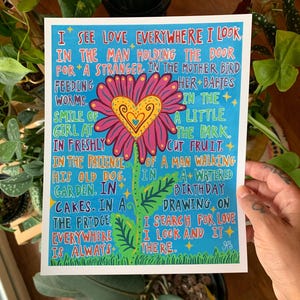 I SEE LOVE EVERYWHERE I LOOK
IN THE MAN HOLDING THE DOOR
FOR A STRANGER IN THE MOTHER BIRD
FEEDING HER BABIES
WORMS IN THE
SMILE OF A LITTLE
GIRL AT THE PARK.
IN FRESHLY CUT FRUIT.
IN THE PATIENCE OF A MAN WALKING
IN A WATERED DOG.
GARDEN. IN BIRTHDAY
CAKES. IN A DRAWING ON
THE FRIDGE I SEARCH FOR LOVE
EVERYWHERE I LOOK AND IT
IS ALWAYS THERE.